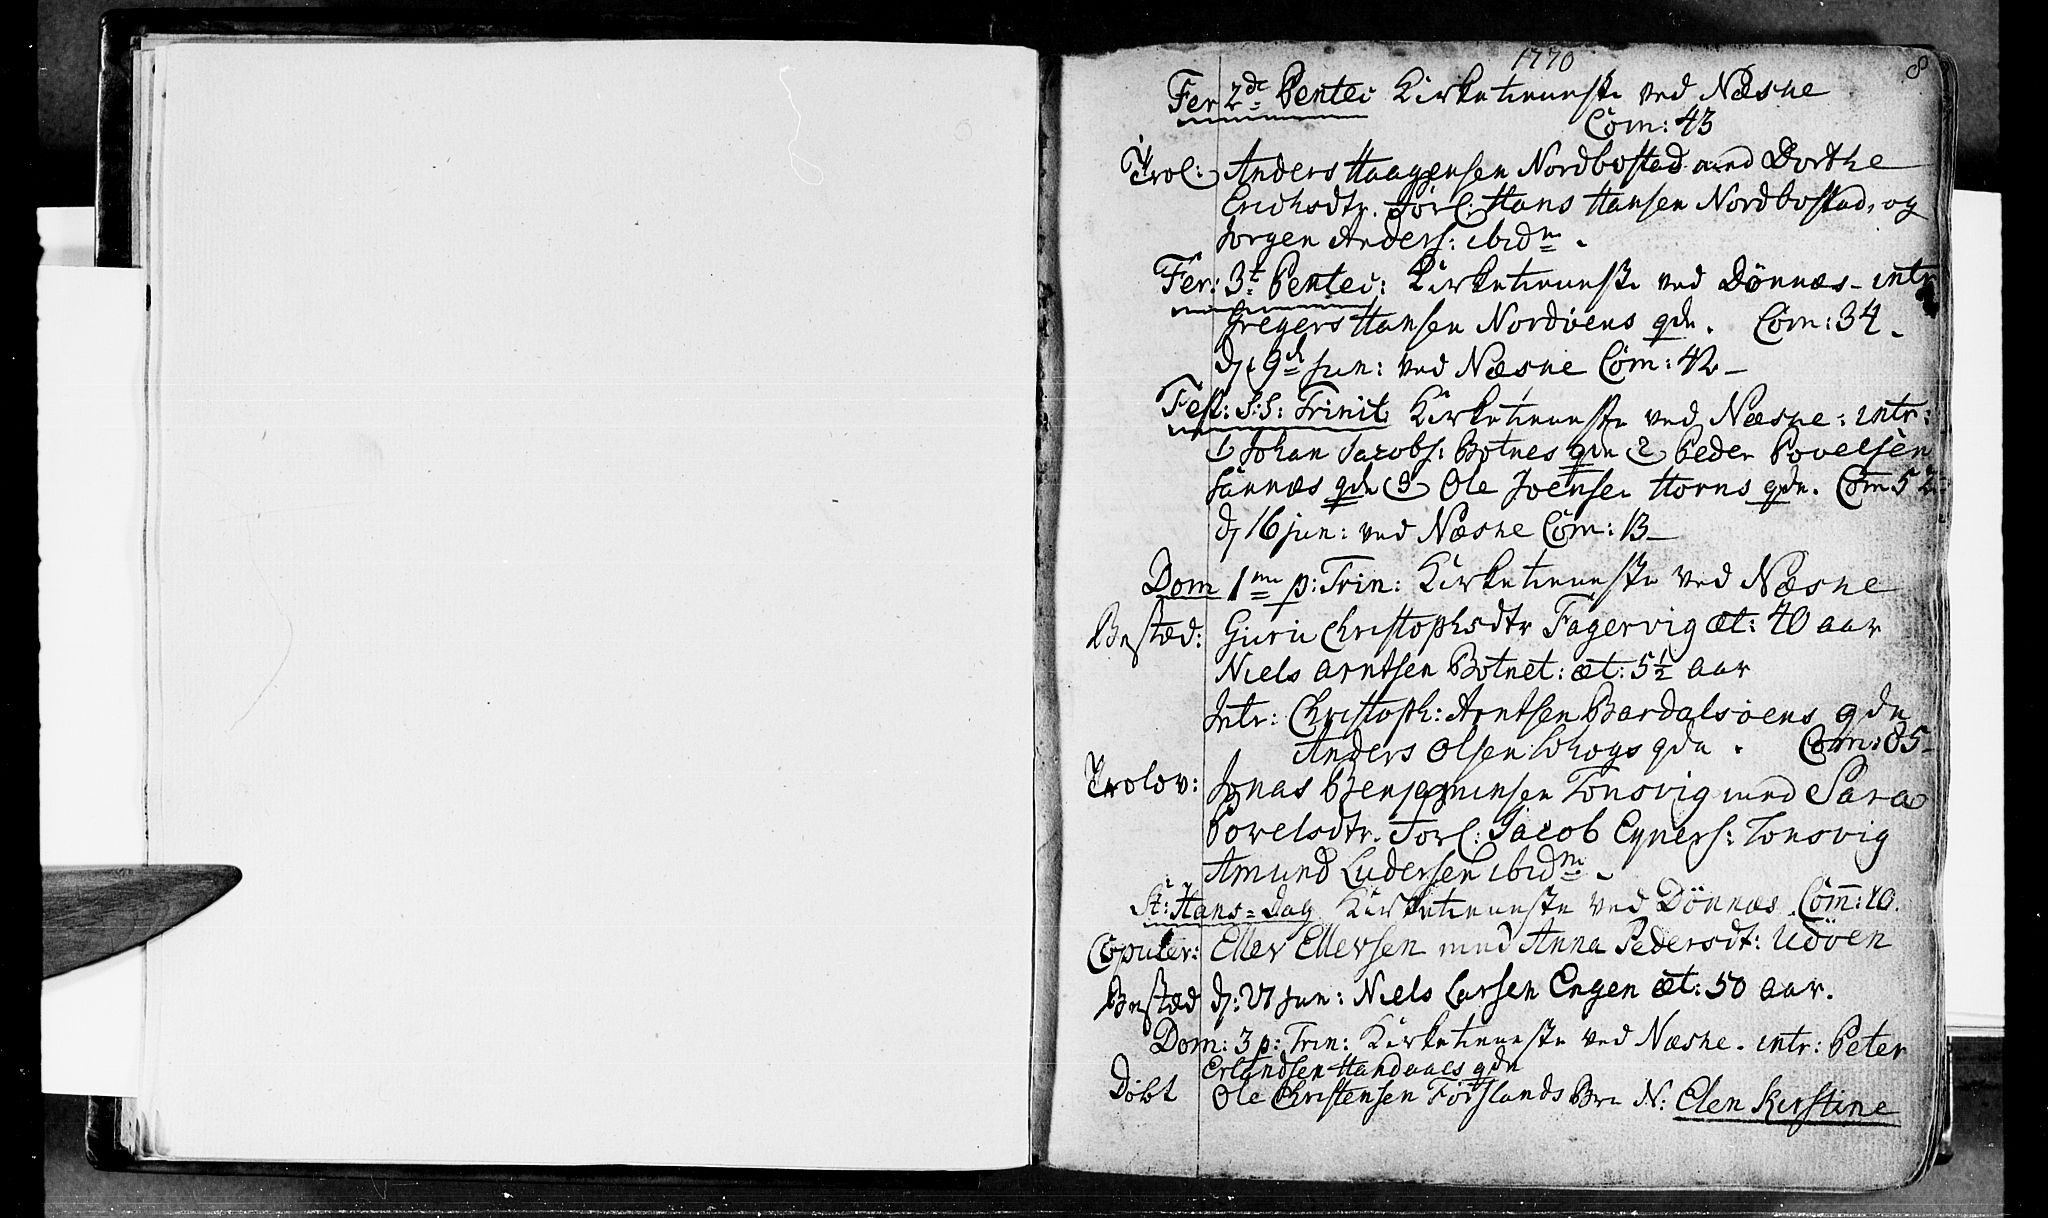 1770
8
Fer 2de Pentec Kirketieneste ved Næsne
Com: 43
Trol: Anders Haagensen Nordbostad med Dorthe
Erichsdtr. Forl: Hans Hansen Nordbostad, og
Jørgen Anders: ibidm.
Fer: 3t Pentec: Kirketieneste ved Dönnæs - intr
Gregers Hansen Nordöens qde. Com: 34.
d 9de Jun: ved Næsne Com: 42 -
Fest: S: S: Trinit Kirketieneste ved Næsne: intr:
1 Johan Jacobs: Botnes qde 2 Peder Povelsen
Sannæs qde 3 Ole Joensen Horns qde. Com 52
d 16 jun: ved Næsne Com: 13 -
Dom 1me p: Trin: Kirketieneste ved Næsne
Begræd: Guru Christophsdtr Fagervig æt: 40 aar
Niels Arntsen Botnet: æt: 5½ aar
Intr: Christoph: Arntsen Bardalsöens qde
Anders Olsen qde. Com: 85 -
Trolov: Jonas Benjaminsen Tonsvig med Sara
Povelsdtr. Forl: Jacob Eyners: Tonsvig
Amund Ludersen ibidm.
St: Hans = Dag Kirketieneste ved Dönnæs. Com: 10.
Copuler: Eller Ellersen med Anna Pedersdt: Udöen
d: 27 Jun: Niels Larsen Engen æt: 50 aar.
Dom: 3 p: Trin: Kirketieneste ved Næsne. intr: Peter
Erlandsen Handnæs qde
Döbt Ole Christensen Forslands Bn N: Elen Kirstine